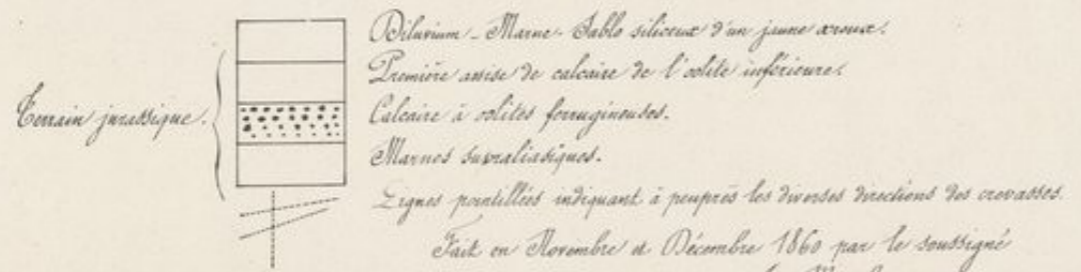 Diluvium - Marne - Sable siliceux d'un jaune ocreux.
Première assise de calcaire de l'oolite inférieure.
Terrain jurassique.
Calcaire à oolites ferrugineuses.
Marnes supraliasiques.
Lignes pointillées indiquant à peuprès les diverses directions des crevasses.
Fait en Novembre et Décembre 1860 par le soussigné